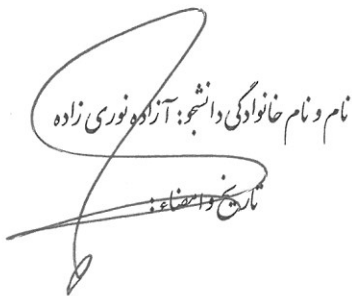 نام و نام خانوادگی دانشجو: آزاده نوری زاده
تاریخ و امضاء: